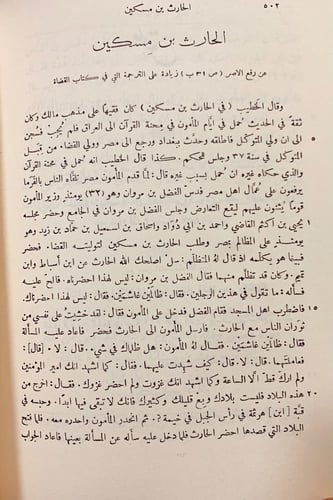 ٥٠٢ الحارث بن مسكين
الحارث بن مِسكين
عن رفع الاصر (ص ٣١ ب) زيادة على الترجمة التي في كتاب القضاة
وقال الخطيب (في الحارث بن مسكين) كان فقيهًا على مذهب مالك وكان
ثقةً في الحديث حُمل في أيّام المأمون في مِحنة القرآن الى العراق فلم يُجِبْ فسُجن
الى ان ولي المتوكّل فاطلقه وحدّث ببغداد ورجع الى مصر وولي القضاء من قِبَل
المتوكّل في سنة ٣٧ وجلس للحكم، كذا قال الخطيب انه حُمل في محنة القرآن
والذي حكاه غيره ان حُمل بسبب غيره قال: لمّا قدم المأمون مصر تلقّاه الناس بالفَرَما
يرفعون على عُمّال اهل مصر فدسّ الفضل بن مروان وهو (٣٢) يومئذٍ وزير المأمون
قومًا يُثنون عليهم ليقع التعارض وجلس الفضل بن مروان في الجامع وحضر مجلسه
يحيى بن اكثم القاضي واحمد بن ابي دُوَاد واسحاق بن اسمعيل بن حمّاد بن زيد وهو
يومئذٍ على المظالم بمصر وطلب الحارث بن مسكين لتوليته القضاء. فحضر
فبينا هو يكلّمه اذ قال له المتظلّم: سلْ اصلحك الله الحارث عن ابن اسباط وابن
تميم. وكان قد تظلّم منهما فقال الفضل بن مروان: ليس لهذا احضرناه. فألحّ عليه
فسأله: ما تقول في هذين الرجلين. فقال: ظالِمَيْن غاشمَيْن. فقال: ليس لهذا احضرناك.
١٥ فاضطرب اهل المسجد فقام الفضل فدخل على المأمون فقال: لقد خشيتُ على نفسي من
ثوران الناس مع الحارث. فارسل المأمون الى الحارث فحضر فاعاد عليه المسألة
فقال: ظالمَيْن غاشمَيْن. فقال له المأمون: هل ظلماك في شيء. قال: لا [قال]:
فعاملتَهما. قال: لا. قال: كيف شهدت عليهما. فقال: كما اشهد انك امير المؤمنين
ولم أرك قطّ الّا الساعة وكما اشهد انك غزوت ولم احضر غزوك. فقال: اخرج من
٢٠ هذه البلاد فليست ببلادك وبِعْ قليلك وكثيرك فانك لا تبقى فيها ابدًا. وحبسه في
قبّة [ابن] هرثمة في رأس الجبل في خيمة؟. ثم انحدر المأمون واحدره معه. فلما فتح
البلاد التي قصدها احضر الحارث فلما دخل عليه سأله عن المسألة بعينها فاعاد الجواب